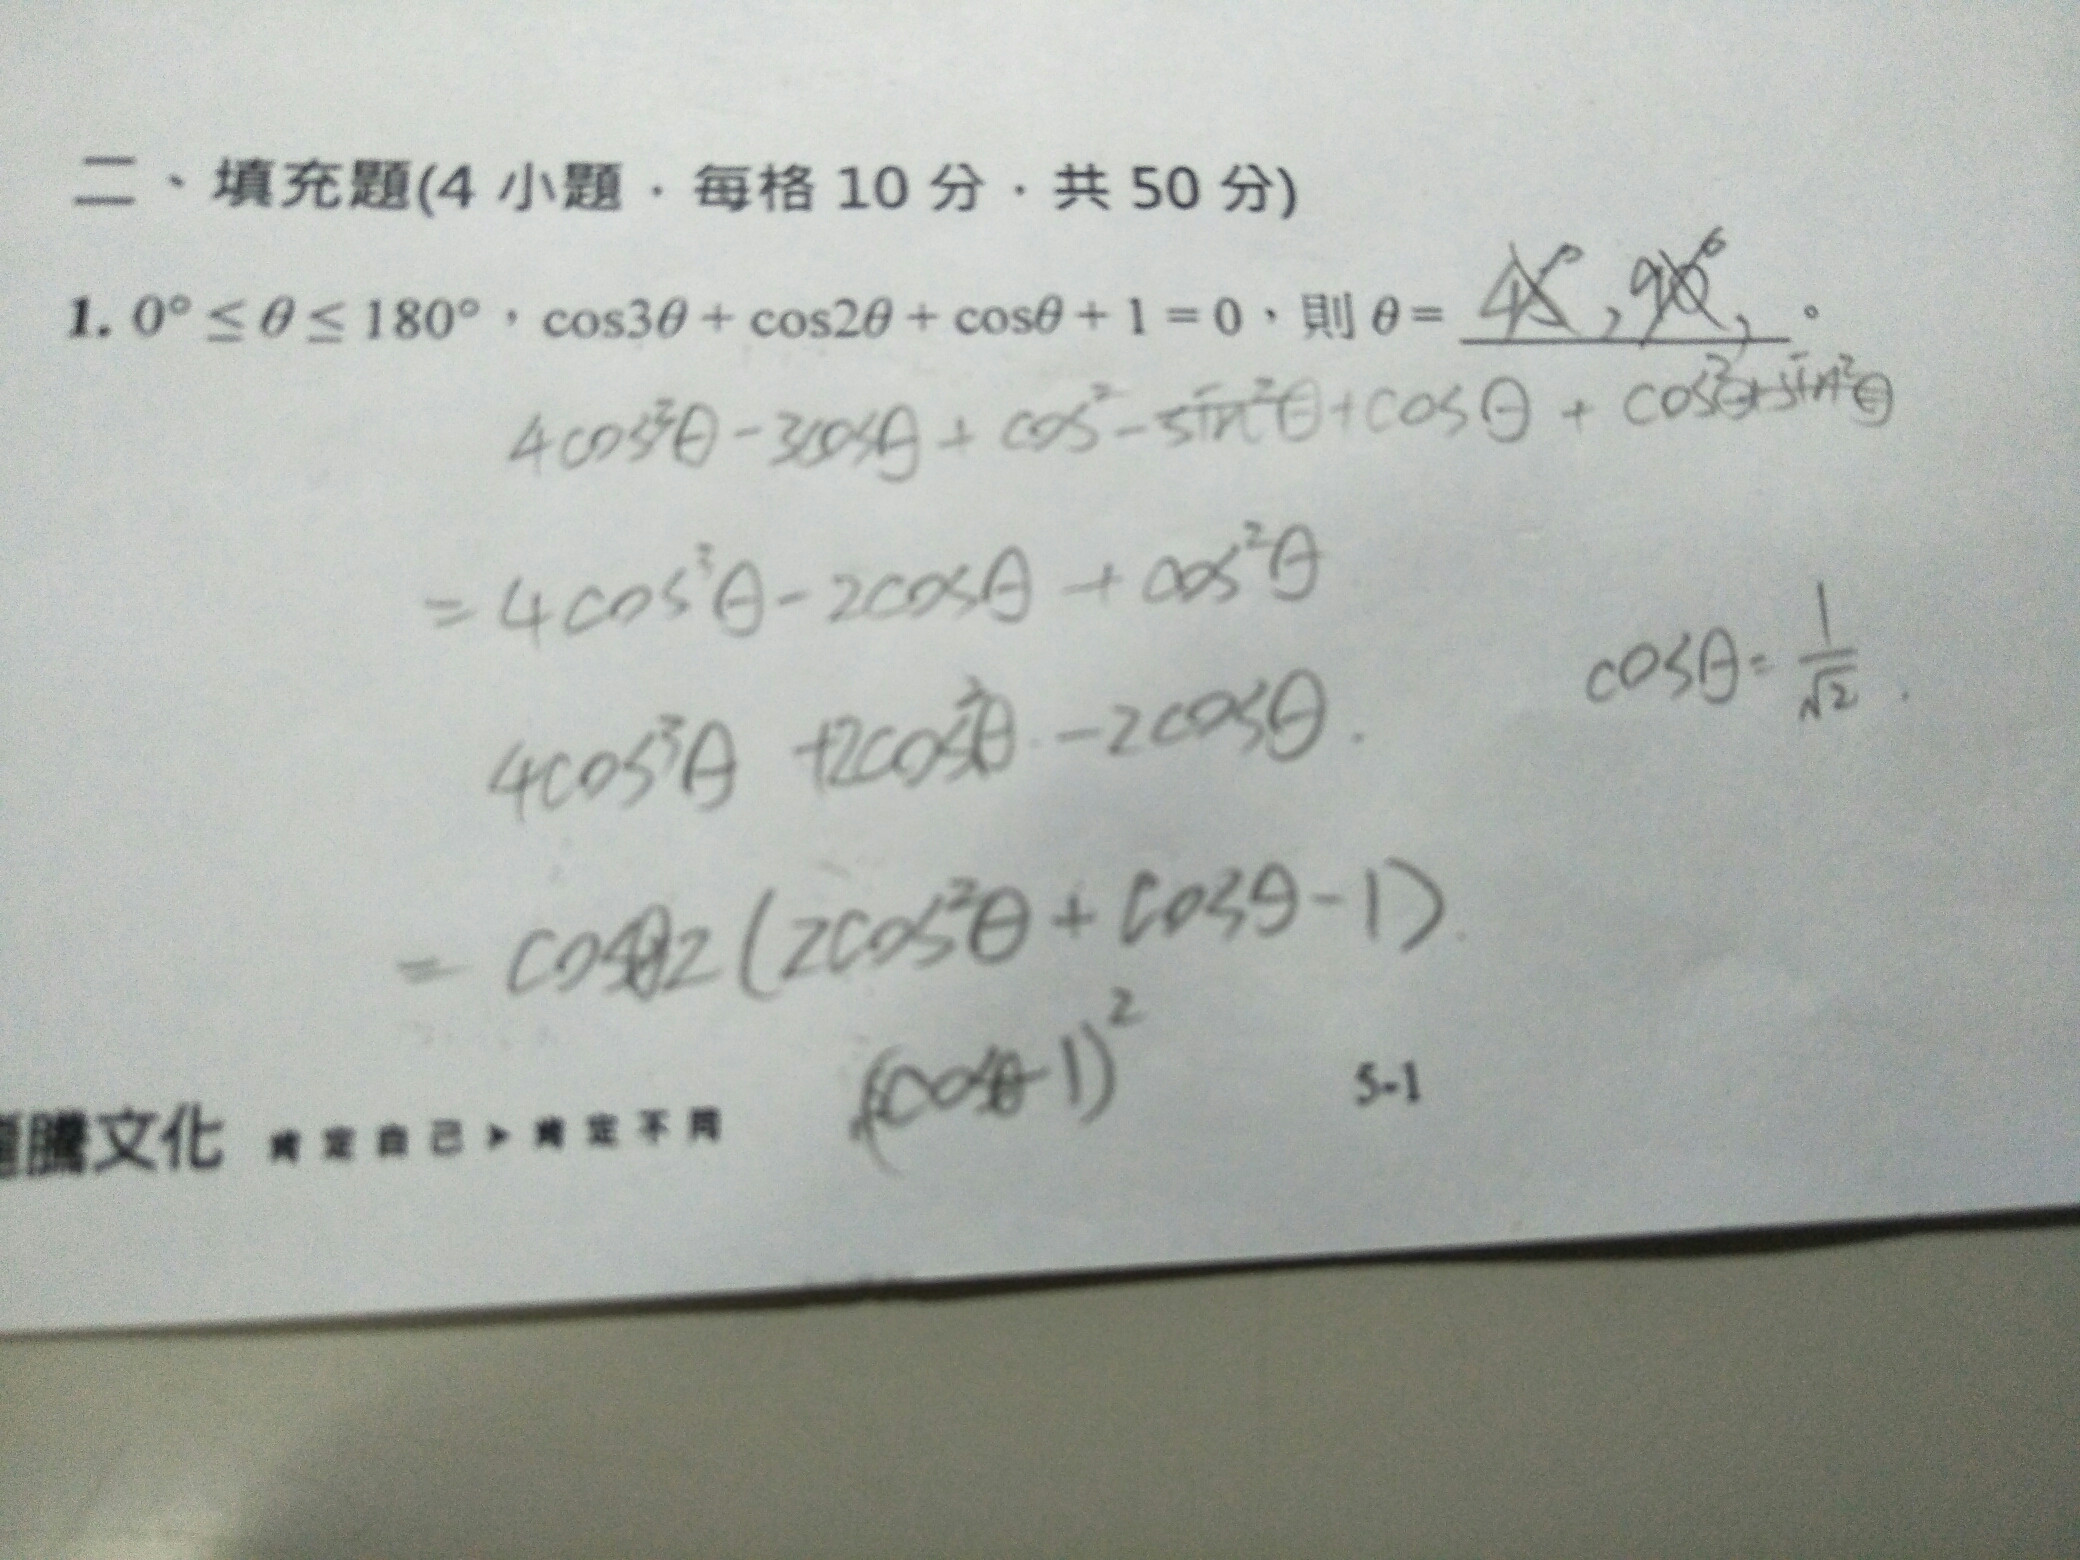 二、填充題(4 小題．每格 10 分．共 50 分)
1. 0° ≤ θ ≤ 180°，cos3θ + cos2θ + cosθ + 1 = 0，則 θ = 45°, 90°, 。
4cos³θ - 3cosθ + cos² - sin²θ + cosθ + cos²θ + sin²θ
= 4cos³θ - 2cosθ + cos²θ
cosθ = 1/√2 .
4cos³θ +2cos²θ - 2cosθ .
= cosθ2 (2cos²θ + cosθ - 1) .
(cosθ-1)²
5-1
騰文化 肯定自己➤肯定不同